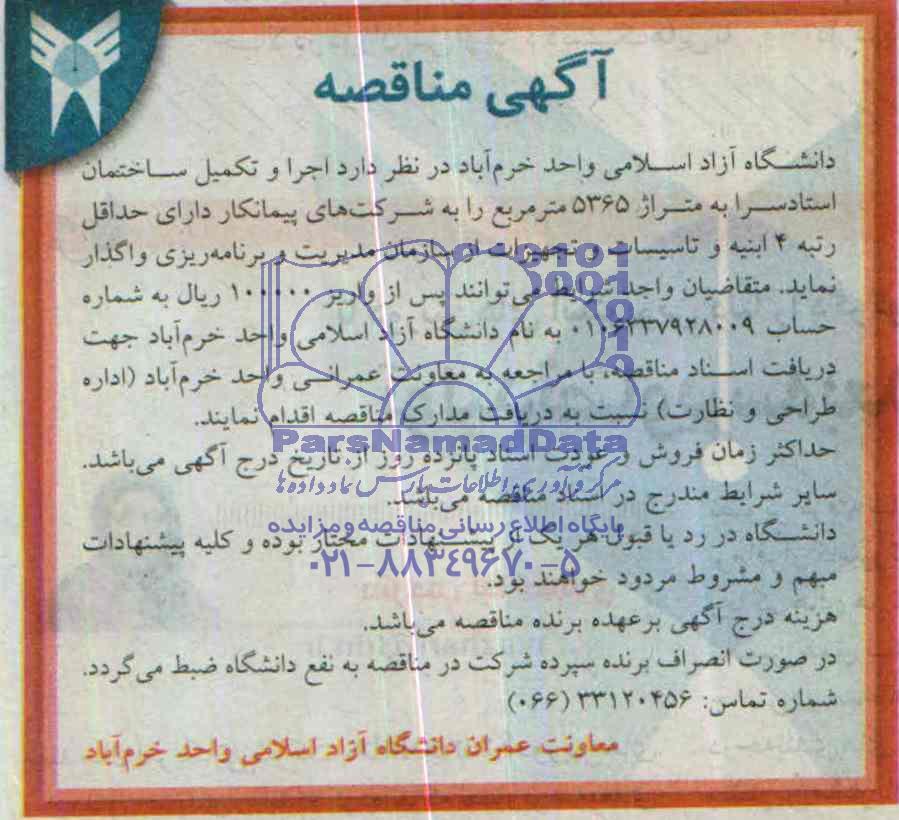 آگهی مناقصه
دانشگاه آزاد اسلامی واحد خرم‌آباد در نظر دارد اجرا و تکمیل ساختمان
استادسرا به متراژ ۵۳۶۵ مترمربع را به شرکت‌های پیمانکار دارای حداقل
رتبه ۴ ابنیه و تاسیسات و تجهیزات از سازمان مدیریت و برنامه‌ریزی واگذار
نماید. متقاضیان واجد شرایط می‌توانند پس از واریز ۱۰۰۰۰۰۰ ریال به شماره
حساب ۰۱۰۶۲۳۷۹۲۸۰۰۹ به نام دانشگاه آزاد اسلامی واحد خرم‌آباد جهت
دریافت اسناد مناقصه، با مراجعه به معاونت عمرانی واحد خرم‌آباد (اداره
طراحی و نظارت) نسبت به دریافت مدارک مناقصه اقدام نمایند.
ParsNamadData
حداکثر زمان فروش و عودت اسناد پانزده روز از تاریخ درج آگهی می‌باشد.
مرکز فرآوری اطلاعات پارس نماد داده‌ها
سایر شرایط مندرج در اسناد مناقصه می‌باشد.
پایگاه اطلاع رسانی مناقصه و مزایده
دانشگاه در رد یا قبول هر یک از پیشنهادات مختار بوده و کلیه پیشنهادات
۰۲۱-۸۸۳۴۹۶۷۰-۵
مبهم و مشروط مردود خواهند بود.
هزینه درج آگهی برعهده برنده مناقصه می‌باشد.
در صورت انصراف برنده سپرده شرکت در مناقصه به نفع دانشگاه ضبط می‌گردد.
شماره تماس: ۳۳۱۲۰۴۵۶ (۰۶۶)
معاونت عمران دانشگاه آزاد اسلامی واحد خرم‌آباد